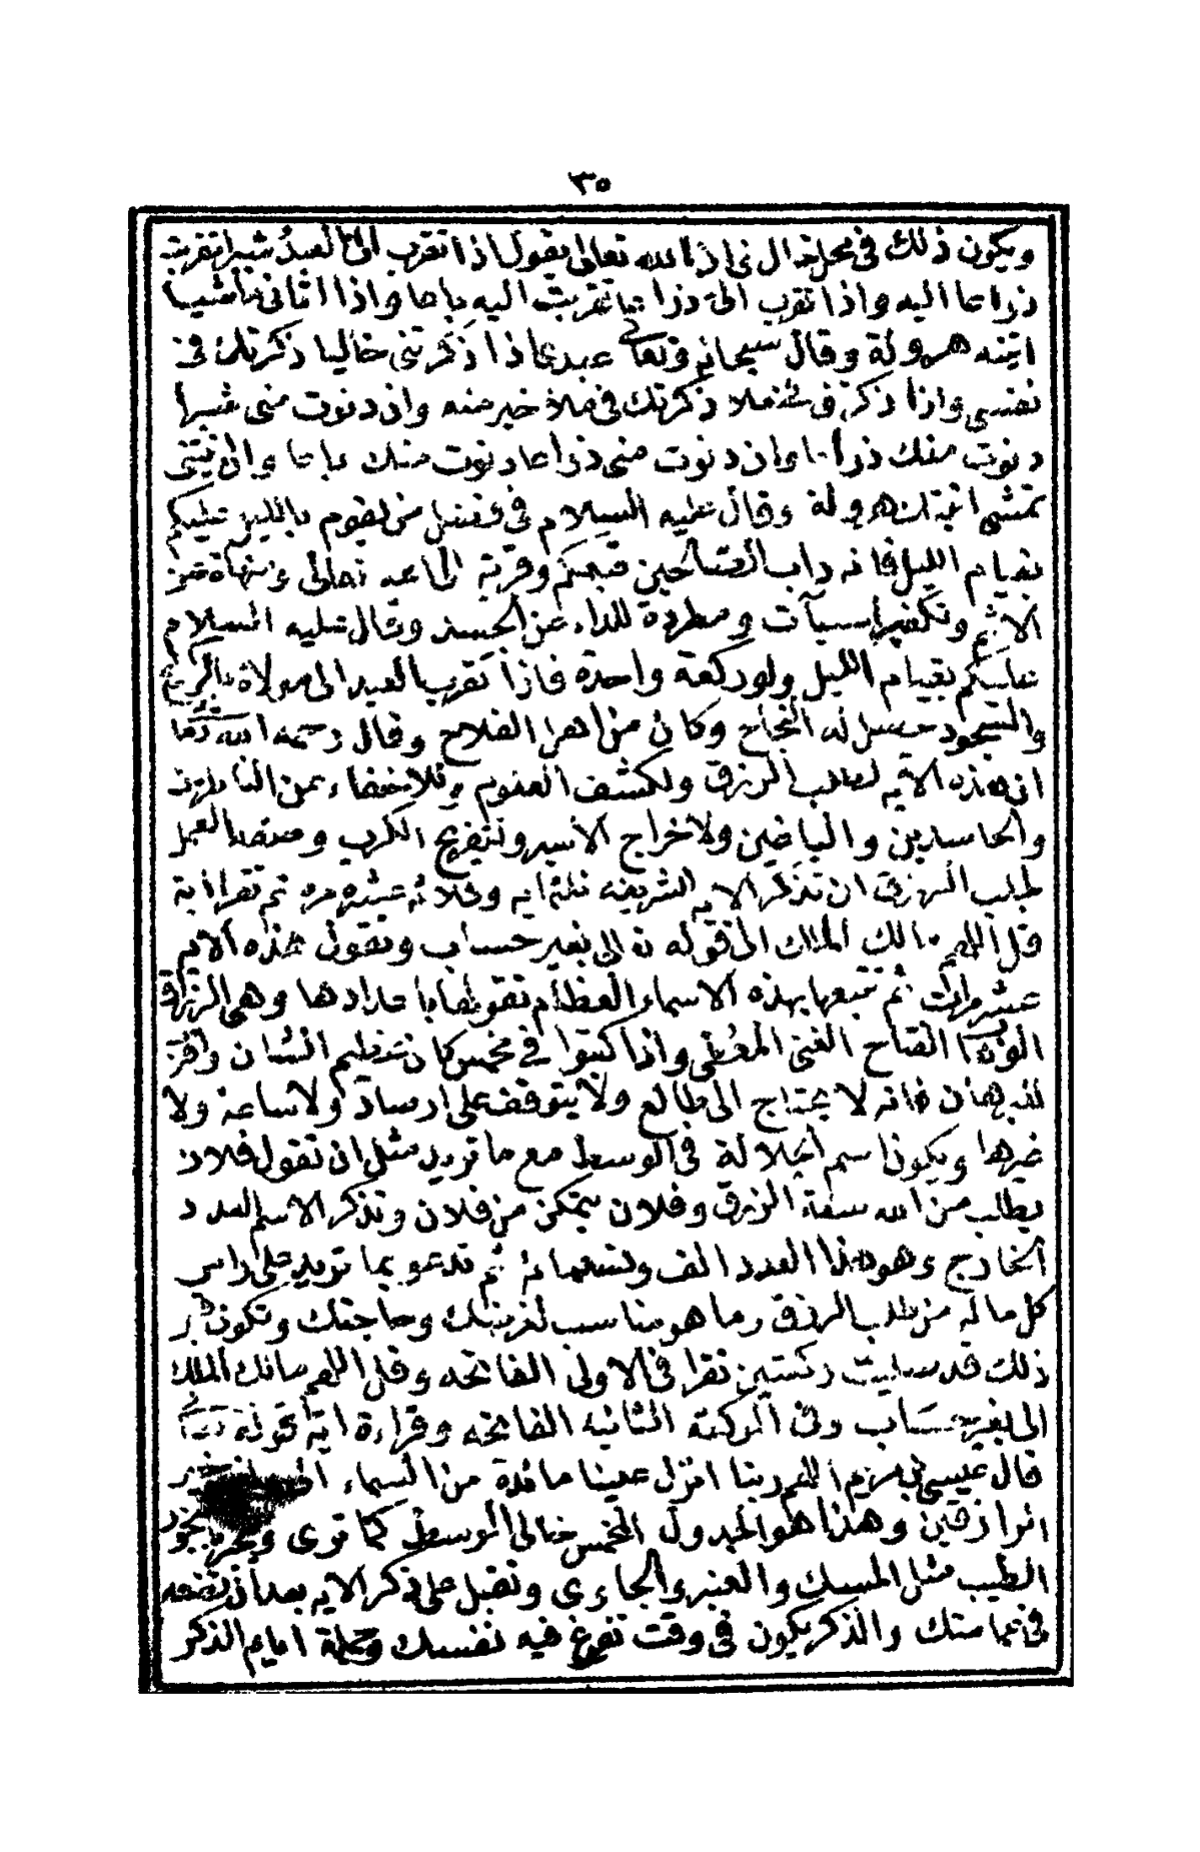 ٣٥
ويكون ذلك في محل خال فإن الله تعالى يقول اذا تقرب الى العبد شبرا تقربت
ذراعا اليه واذا تقرب الى ذراعا تقربت اليه باعا واذا اتانى ماشيا
اتيته هرولة وقال سبحانه وتعالى عبدى اذا ذكرتنى خاليا ذكرتك فى
نفسى واذا ذكرتنى فى ملا ذكرتك فى ملا خير منه وان دنوت منى شبرا
دنوت منك ذراعا وان دنوت منى ذراعا دنوت منك باعا وان اتيتنى
تمشى اتيتك هرولة وقال عليه السلام فى فضل من يقوم بالليل عليكم
بقيام الليل فانه داب الصالحين قبلكم وقربة الى الله تعالى ومنهاة عن
الاثم وتكفير السيآت ومطردة للداء عن الجسد وقال عليه السلام
عليكم بقيام الليل ولو ركعة واحدة فاذا تقرب العبد الى مولاه بالركوع
والسجود حصل له النجاح وكان من اهل الفلاح وقال رحمه الله تعا
ان هذه الايه لطلب الرزق ولكشف الغموم وللاخفاء عن الناظرين
والحاسدين والباغين ولاخراج الاسير ولتفريج الكرب وصفة العمل
لجلب الرزق ان تذكر الايه الشريفه ثلثمايه وثلاثه عشره مره ثم تقرا اية
قل اللهم مالك الملك الى قوله تعالى بغير حساب وتقول هذه الايه
عشر مرات ثم تتبعها بهذه الاسماء العظام تقولها باعدادها وهى الرزاق
الوهاب الفتاح الغنى المغنى واذا كتبوا فى مخمس كان عظيم الشان وافر
البرهان فانه لا يحتاج الى طالع ولا يتوقف على ارصاد ولا ساعة ولا
غيرها ويكون اسم الجلالة فى الوسط مع ما تريد مثل ان تقول فلان
يطلب من الله سعة الرزق وفلان يتمكن من فلان وتذكر الاسم العدد
الخارج وهو هذا العدد الف وتسعمائة ثم تدعو بما تريد على راس
كل مائه من طلب الرزق وما هو مناسب لغرضك وحاجتك وتكون قبل
ذلك قد صليت ركعتين تقرا فى الاولى الفاتحه وقل اللهم مالك الملك
الى بغير حساب وفى الركعة الثانيه الفاتحه وقراءة اية قوله تعا
قال عيسى بن مريم اللهم ربنا انزل علينا مائدة من السماء الى خير
الرازقين وهذا هو الجدول المخمس خالى الوسط كما ترى وبخره ببخور
الطيب مثل المسك والعنبر والجاوى وتقبل على ذكر الايه بعد ان تضعه
فى عمامتك والذكر يكون فى وقت تفرغ فيه نفسك وجملة ايام الذكر